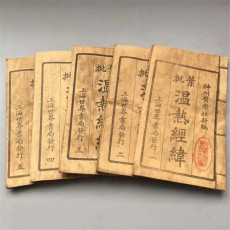 葉批
神州醫學社新編
温熱經緯
上海世界書局發行 一
批
上海世界書局發行 二
批
温熱經
上海世界書局發行 三
批
上海世界書局發行 四
上海世界書局發行 五